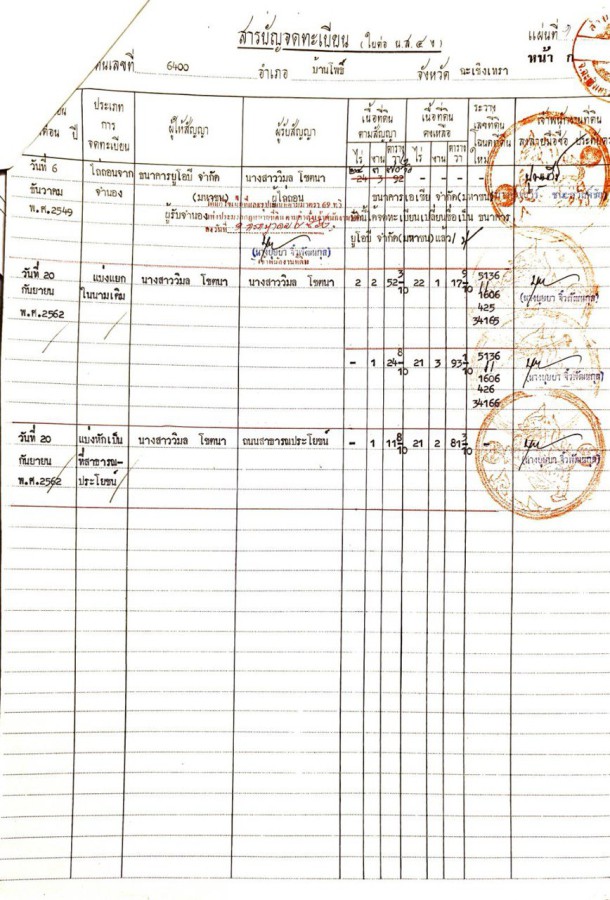 สารบัญจดทะเบียน (ใบต่อ น.ส.๔ จ)
แผ่นที่
หน้า
เลขที่ 6400 อำเภอ บ้านโพธิ์ จังหวัด ฉะเชิงเทรา
ปี
ประเภท การ จดทะเบียน
ผู้ให้สัญญา
ผู้รับสัญญา
เนื้อที่ดิน ตามสัญญา
ไร่ งาน ตาราง วา
เนื้อที่ดิน คงเหลือ
ไร่ งาน ตาราง วา
ระวาง เลขที่ดิน โฉนดที่ดิน ใหม่
เจ้าพนักงานที่ดิน
วันที่ 6 ไถ่ถอนจาก ธนาคารยูโอบี จำกัด นางสาววิมล โชตนา 24 3 92 - - -
ธันวาคม จำนอง (มหาชน) ผู้ไถ่ถอน ธนาคารเอเชีย จำกัด(มหาชน)
พ.ศ.2549 ผู้รับจำนอง จดทะเบียนเปลี่ยนชื่อเป็น ธนาคาร
ยูโอบี จำกัด(มหาชน) แล้ว
วันที่ 20 แบ่งแยก นางสาววิมล โชตนา นางสาววิมล โชตนา 2 2 52 3/10 22 1 17 9/10 5136
กันยายน ในนามเดิม
1606
พ.ศ.2562 425
34165
- 1 24 8/10 21 3 93 1/10 5136
1606
426
34166
วันที่ 20 แบ่งหักเป็น นางสาววิมล โชตนา ถนนสาธารณประโยชน์ - 1 11 8/10 21 2 81 3/10 -
กันยายน ที่สาธารณ-
พ.ศ.2562 ประโยชน์